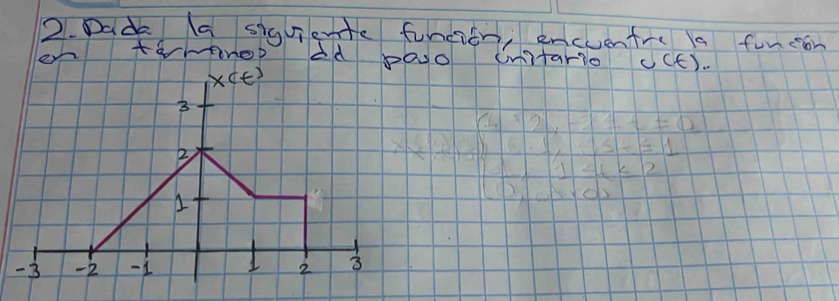 2. Dada la siguiente función, encuentre la función
en términos del paso unitario u(t).
x(t)
3
2
1
-3 -2 -1 1 2 3